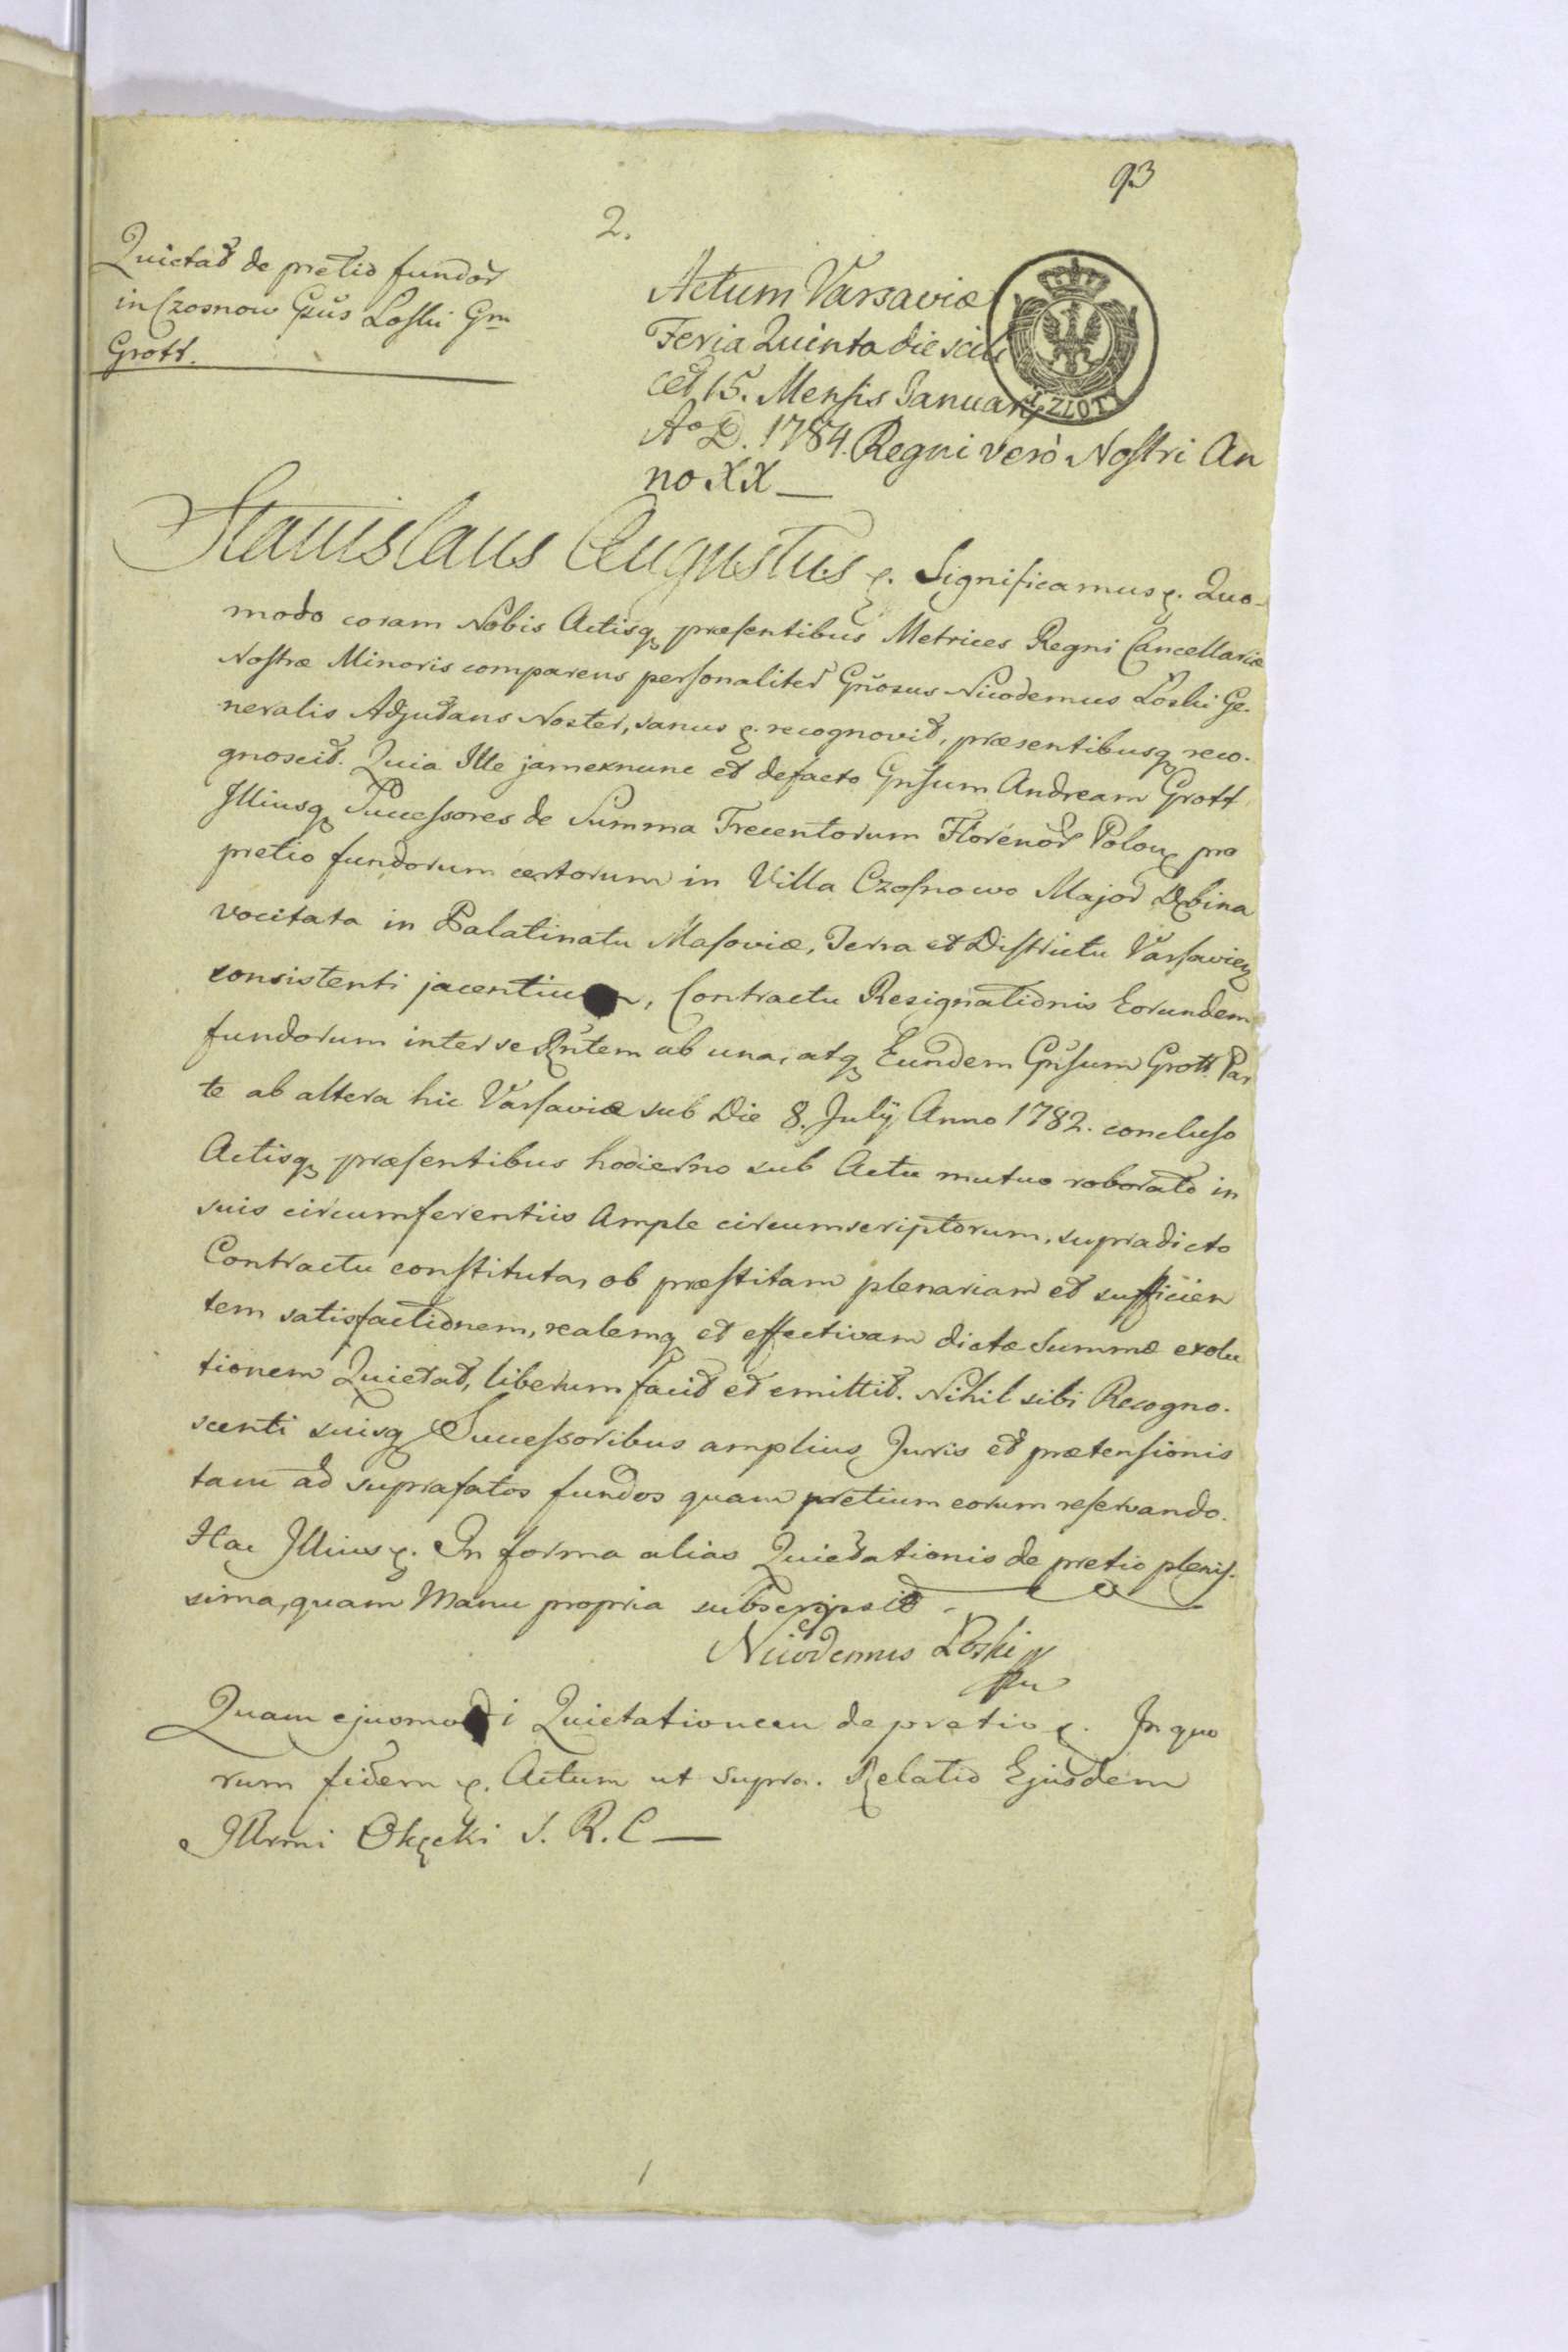 93
2.
Quietat de pretio fundor
in Czosnow Gsus Loski Gm
Grott.
Actum Varsaviæ
Feria Quinta die scili
cet 15. Mensis Januarij
Ao D. 1784. Regni verò Nostri An
no XX
1 ZLOTY
Stanislaus Augustus &. Significamus &. Quo-
modo coram Nobis Actisq præsentibus Metrices Regni Cancellariæ
Nostræ Minoris comparens personaliter Gnosus Nicodemus Łoski Ge-
neralis Adjutans Noster, sanus &. recognovit, præsentibusq reco-
gnoscit. Quia Ille jamexnunc et defacto Gnsum Andream Grott
Illiusq Successores de Summa Trecentorum Florenor Polon pro
pretio fundorum certorum in Villa Czosnowo Major Dębina
vocitata in Palatinatu Masoviæ, Terra et Districtu Varsavien
consistenti jacentium, Contractu Resignationis Eorundem
fundorum inter se Rntem ab una, atq Eundem Gnsum Grott Par
te ab altera hic Varsaviæ sub Die 8. July Anno 1782. concluso
Actisq præsentibus hodierno sub Actu mutuo roborato in
suis circumferentiis Ample circumscriptorum, supradicto
Contractu constituta, ob præstitam plenariam et sufficien
tem satisfactionem, realemq et effectivam dictæ Summæ exolu
tionem Quietat, liberum facit et emittit. Nihil sibi Recogno-
scenti suisq Successoribus amplius Juris et prætensionis
tam ad suprafatos fundos quam pretium eorum reservando.
Hac Illius &. In forma alias Quietationis de pretio plenis-
sima, quam Manu propria subscripsit.
Nicodemus Łoski
Quam ejusmodi Quietationem de pretio &. In quo
rum fidem &. Actum ut supra. Relatio Ejusdem
Illrmi Okęcki S. R. C